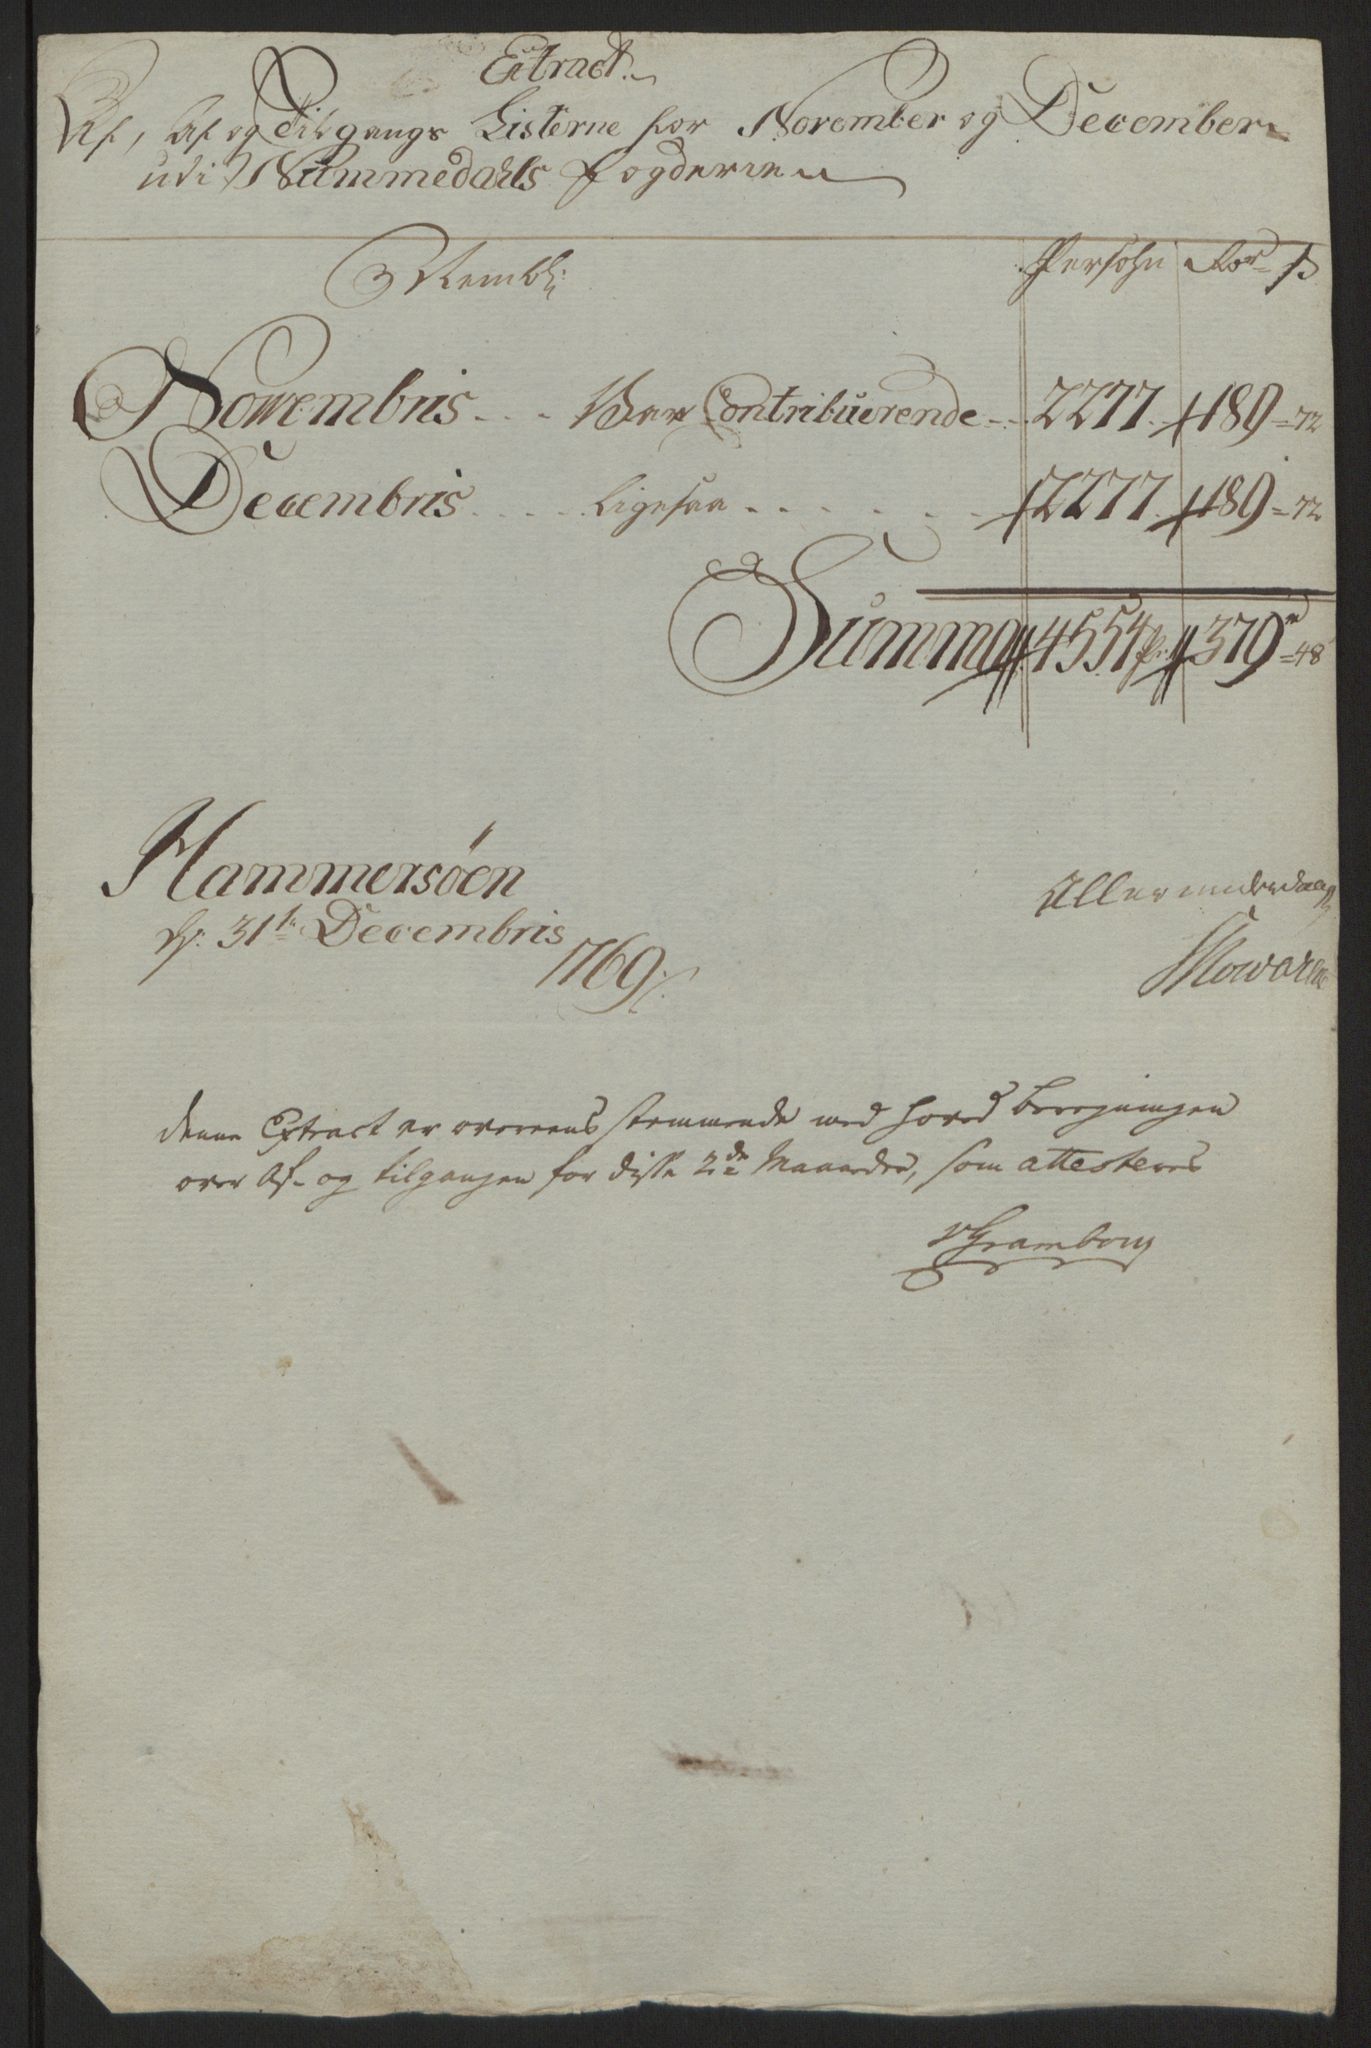 Extract
Af, Af og Tilgangs Listerne for November og December
udi Nummedahls Fogderie
Persohn Rdr ß
Nowembris . . . Var Contribuerende . . 2277. 189 = 72
Decembris . . . . Ligesaa . . . . . . . 2277. 189 = 72
Summa 4554 379 = 48
Hammersöen
d: 31te Decembris
1769.
Allerunderdanigst
denne Extract er overeens stemmende med hoved beregningen
over Af- og tilgangen for disse 2de Maaneder, som attesteres